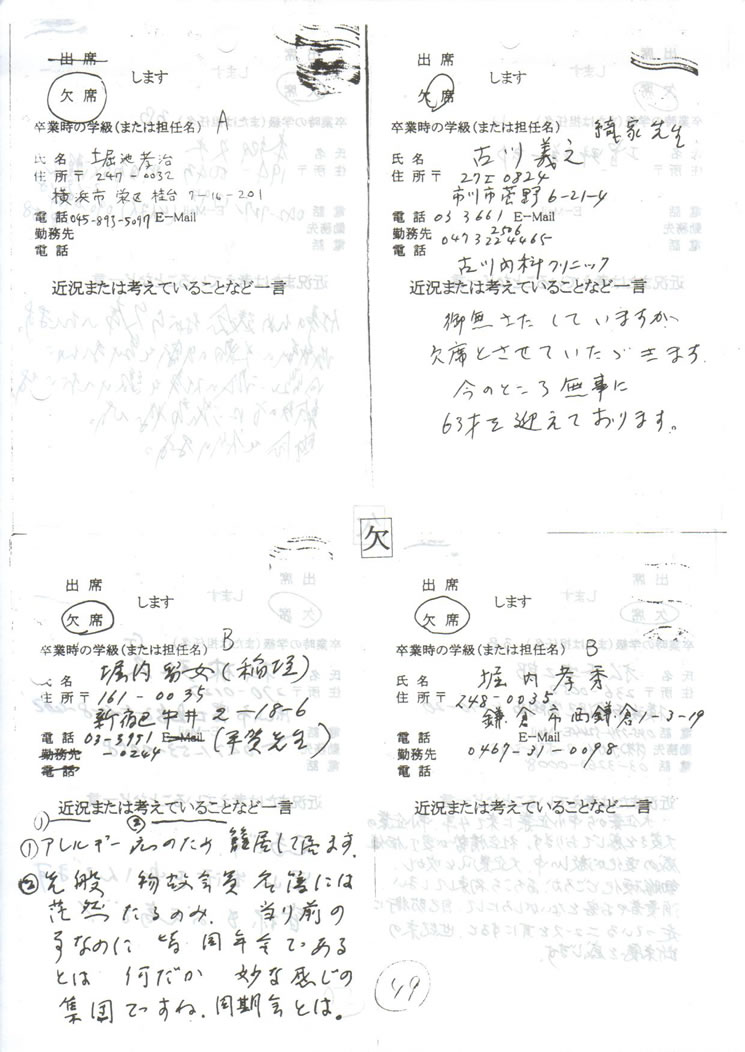 出席
欠席
します
卒業時の学級(または担任名) A
氏名 堀池孝治
住所〒 247-0032
横浜市栄区桂台2-16-201
電話 045-893-5097 E-Mail
勤務先
電話
近況または考えていることなど一言
出席
欠席
します
卒業時の学級(または担任名)
先生
氏名 古川義之
住所〒 272 0824
市川市菅野6-21-4
電話 03 3661 E-Mail
2506
勤務先 0473224465
電話
古川内科クリニック
近況または考えていることなど一言
御無さたしていますが
欠席とさせていただきます
今のところ無事に
63才を迎えております。
欠
出席
欠席
します
卒業時の学級(または担任名) B
氏名 堀内
住所〒 161-0035
新宿区中井2-18-6
電話 03-3951 E-Mail (平賀先生)
勤務先 -0244
電話
近況または考えていることなど一言
①アレルギー病のため籠居して居ます。
②先般 物故会員名簿には
茫然たるのみ. 当り前の
事なのに 皆同年令である
とは 何だか 妙な感じの
集団ですね.同期会とは。
出席
欠席
します
卒業時の学級(または担任名) B
氏名 堀内孝
住所〒 248-0035
鎌倉市西鎌倉1-3-19
電話 E-Mail
勤務先 0467-31-0098
電話
近況または考えていることなど一言
49